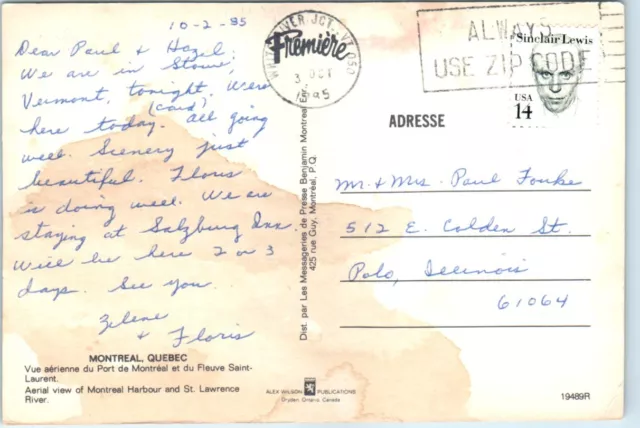 10-2-85
Dear Paul & Hazel:
We are in Stowe,
Vermont, tonight. Were
(card)
here today. All going
well. Scenery just
beautiful. Floris
is doing well. We are
staying at Salzburg Inn.
Will be here 2 or 3
days. See you.
Zelene
& Floris
MONTREAL, QUEBEC
Vue aérienne du Port de Montréal et du Fleuve Saint-
Laurent.
Aerial view of Montreal Harbour and St. Lawrence
River.
Dist. par Les Messageries de Presse Benjamin Montreal Enr.
425 rue Guy, Montréal, P.Q.
Première
WHITE RIVER JCT, VT 050
3 OCT
1985
ALWAYS
USE ZIP CODE
Sinclair Lewis
USA
14
ADRESSE
Mr. & Mrs. Paul Fouke
512 E. Colden St.
Polo, Illinois
61064
ALEX WILSON PUBLICATIONS
Dryden Ontario Canada
19489R